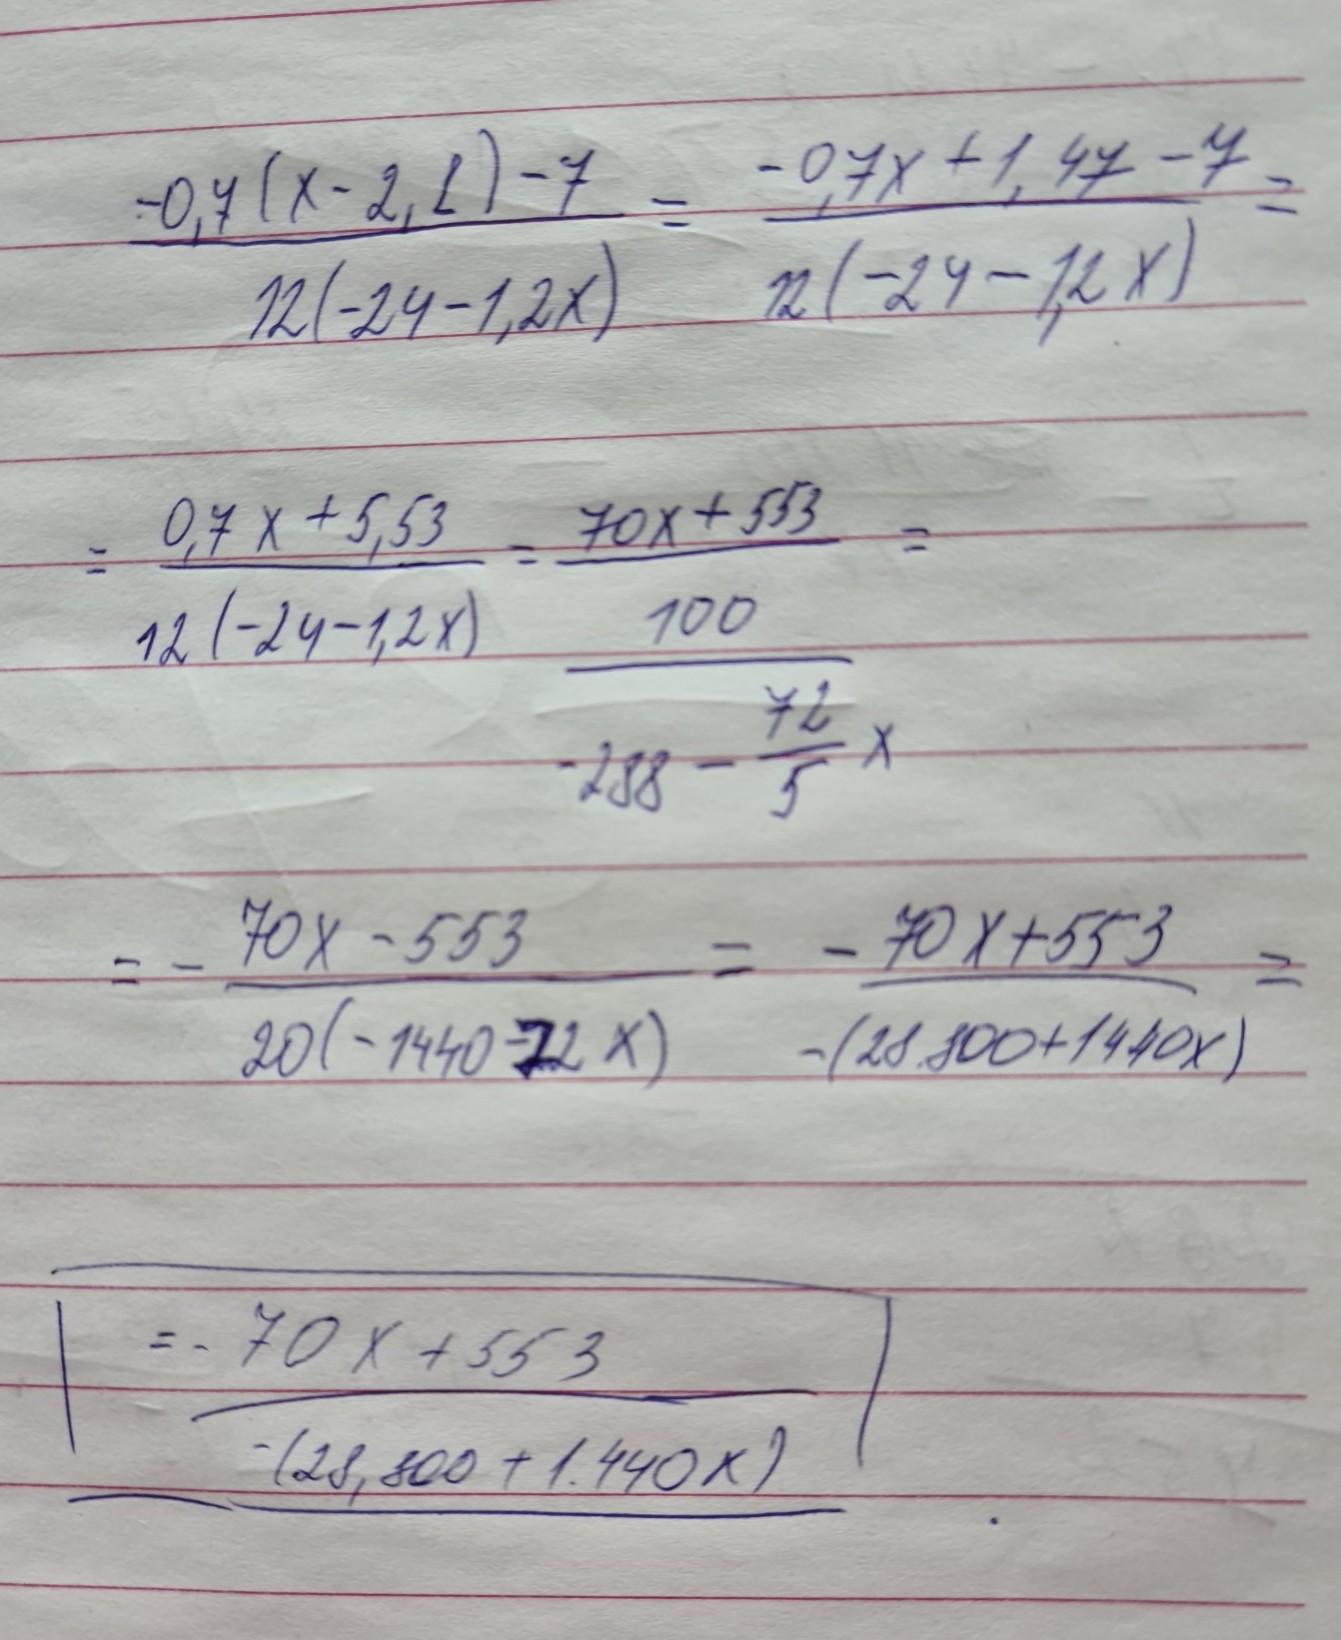 -0,7(x-2,1)-7 / 12(-24-1,2x) = -0,7x+1,47-7 / 12(-24-1,2x) =
= 0,7x+5,53 / 12(-24-1,2x) = 70x+553 / 100 / -288 - 72/5 x =
= - 70x-553 / 20(-1440-72x) = - 70x+553 / -(28.800+1440x) =
=- 70x+553 / -(28,800+1.440x)